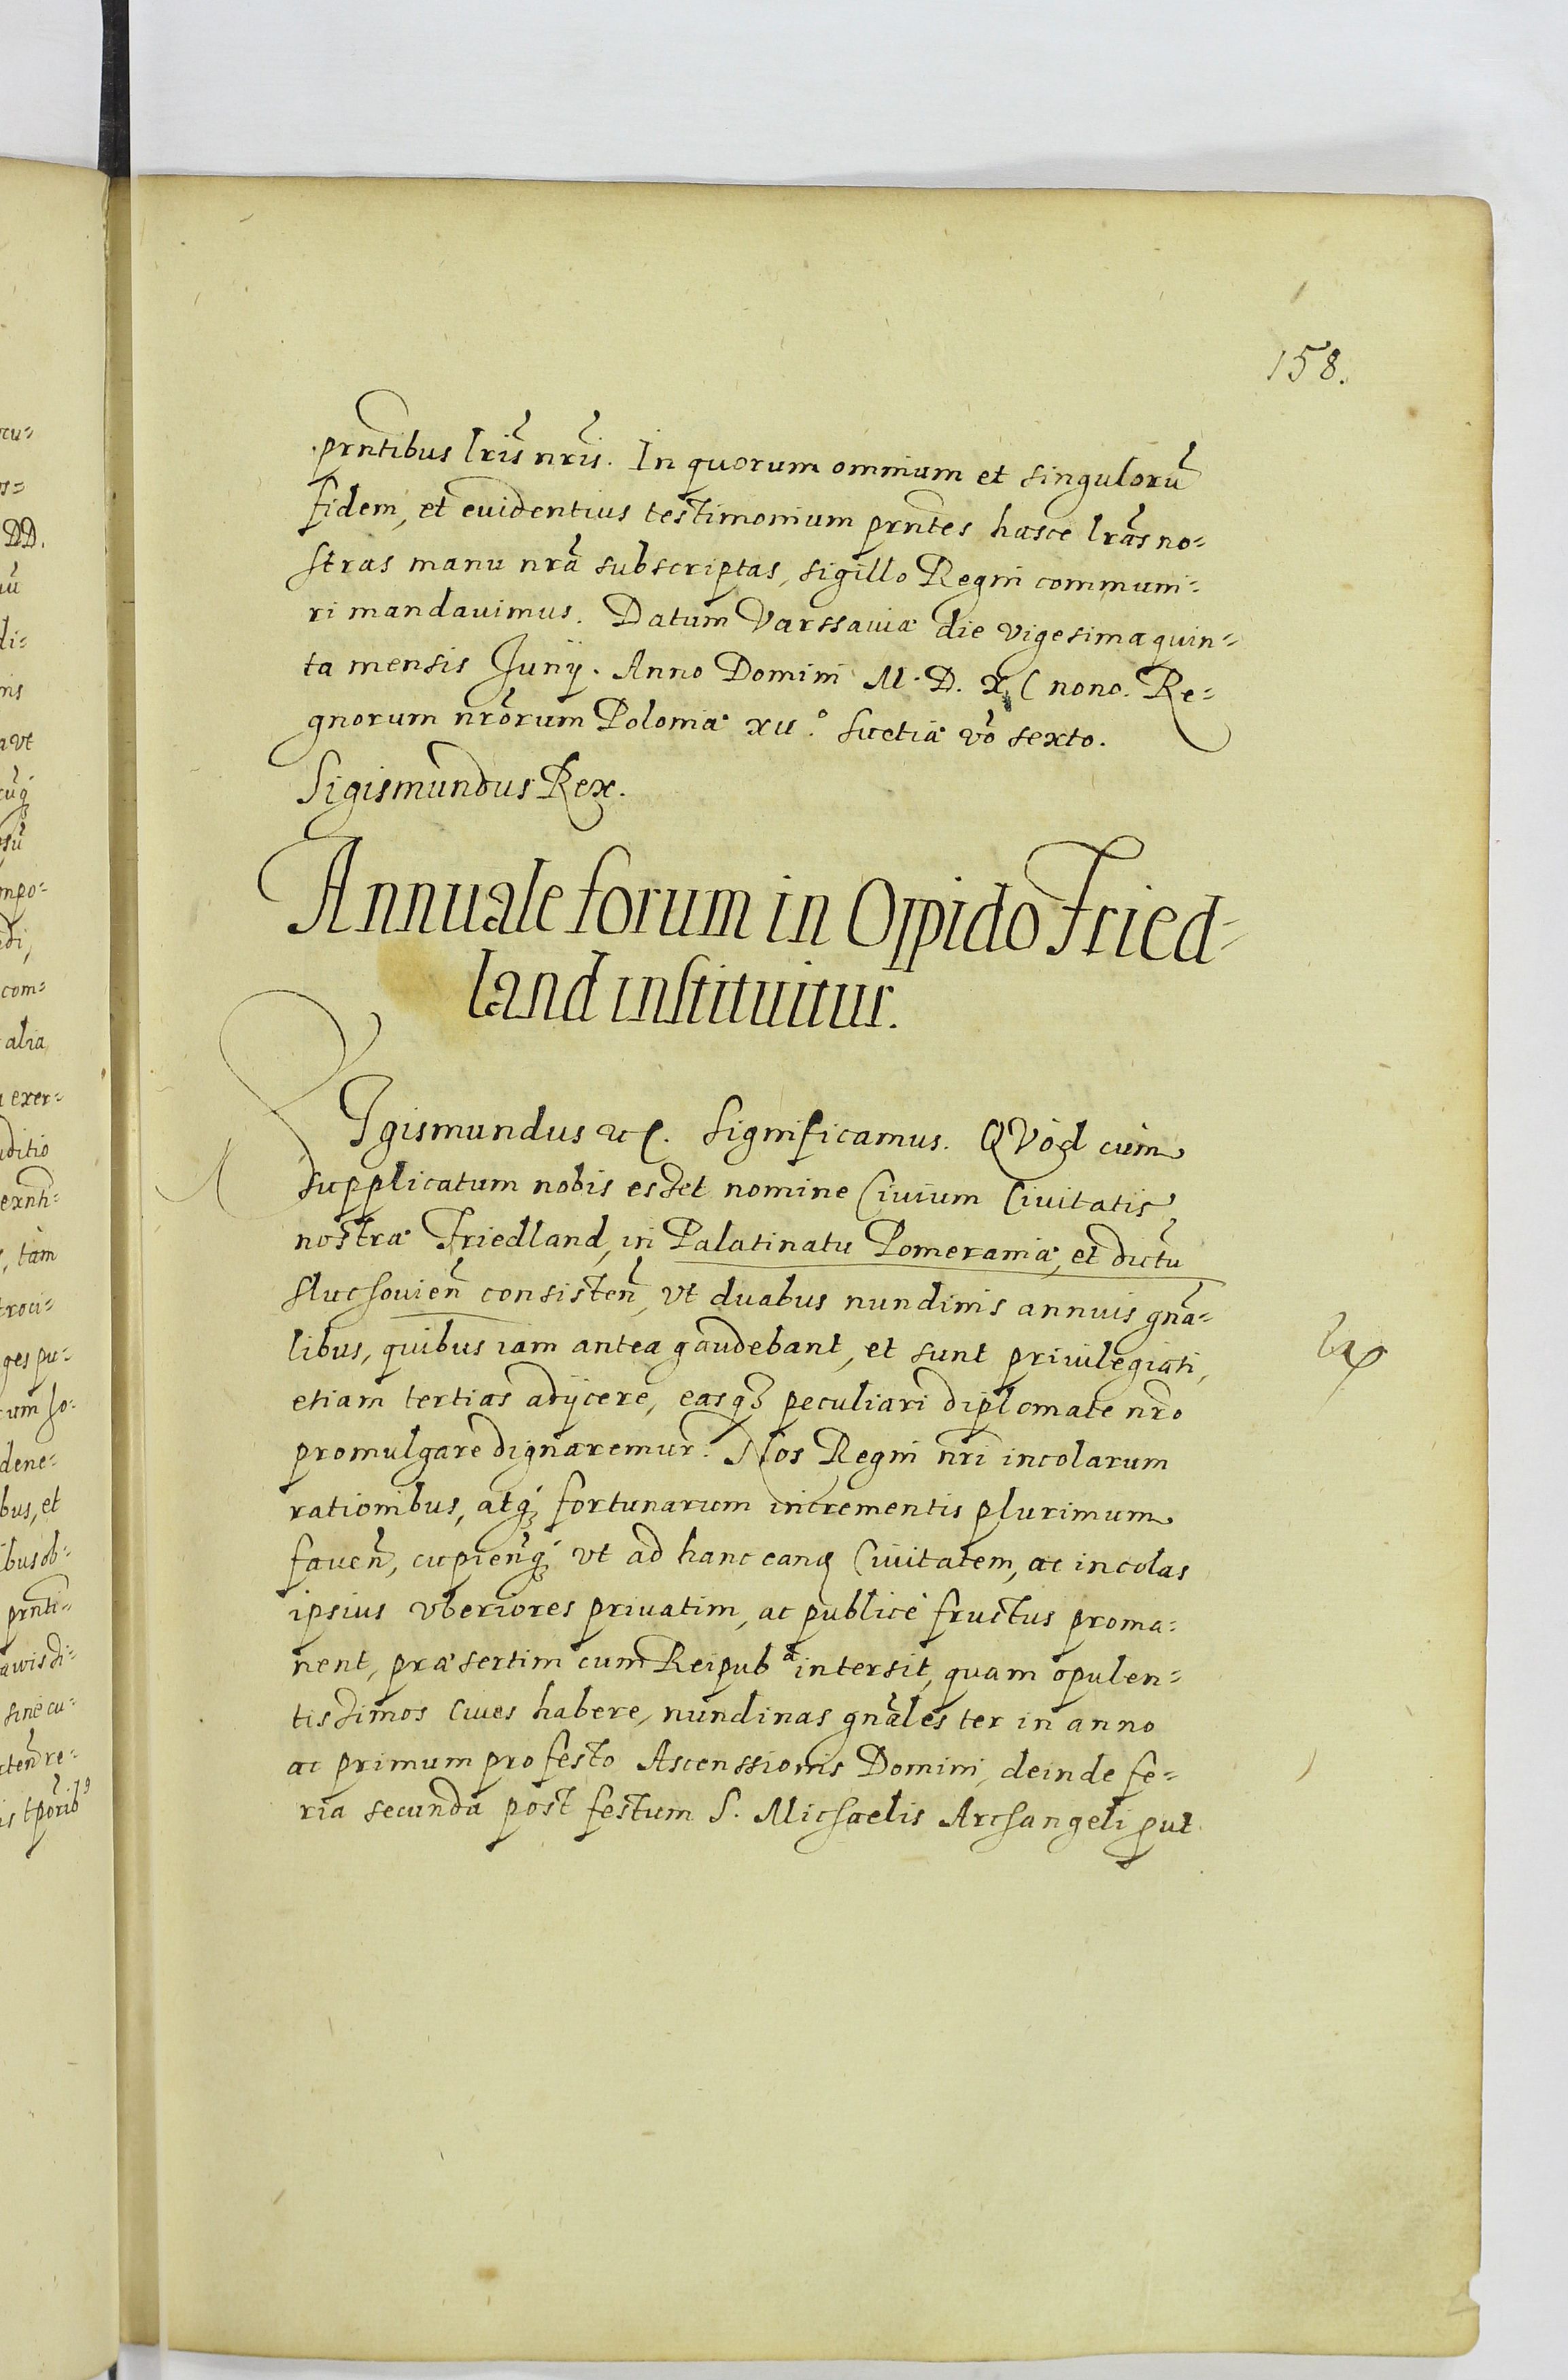 158.
prntibus lris nris. In quorum omnium et singulorū
fidem, et euidentius testimonium prntes hasce lras no=
stras manu nrā subscriptas, sigillo Regni communi=
ri mandauimus. Datum Varssauiæ die vigesima quin=
ta mensis Junij. Anno Domini M. D. XC nono. Re=
gnorum nrōrum Poloniæ xii.° Suetiæ vō sexto.
Sigismundus Rex.
Annuale forum in Oppido Fried=
land instituitur.
SIgismundus etc. Significamus. QVòd cùm
supplicatum nobis esset nomine Ciuium Ciuitatis
nostræ Friedland, in Palatinatu Pomeraniæ, et dictū
Sluchouień consisteń, vt duabus nundinis annuis gnā=
libus, quibus iam antea gaudebant, et sunt priuilegiati,
etiam tertias adijcere, easq3 peculiari diplomate nrō
promulgare dignaremur. Nos Regni nri incolarum
rationibus, atq3 fortunarum incrementis plurimum
faueń, cupieńq3 vt ad hanc eand Ciuitatem, ac incolas
ipsius vberiores priuatim, ac publicè fructus proma=
nent, præsertim cum Reipubᵃ intersit, quam opulen=
tissimos ciues habere, nundinas gnāles ter in anno
ac primum pro festo Ascenssionis Domini, deinde fe=
ria secunda post festum S. Michaelis Archangeli put